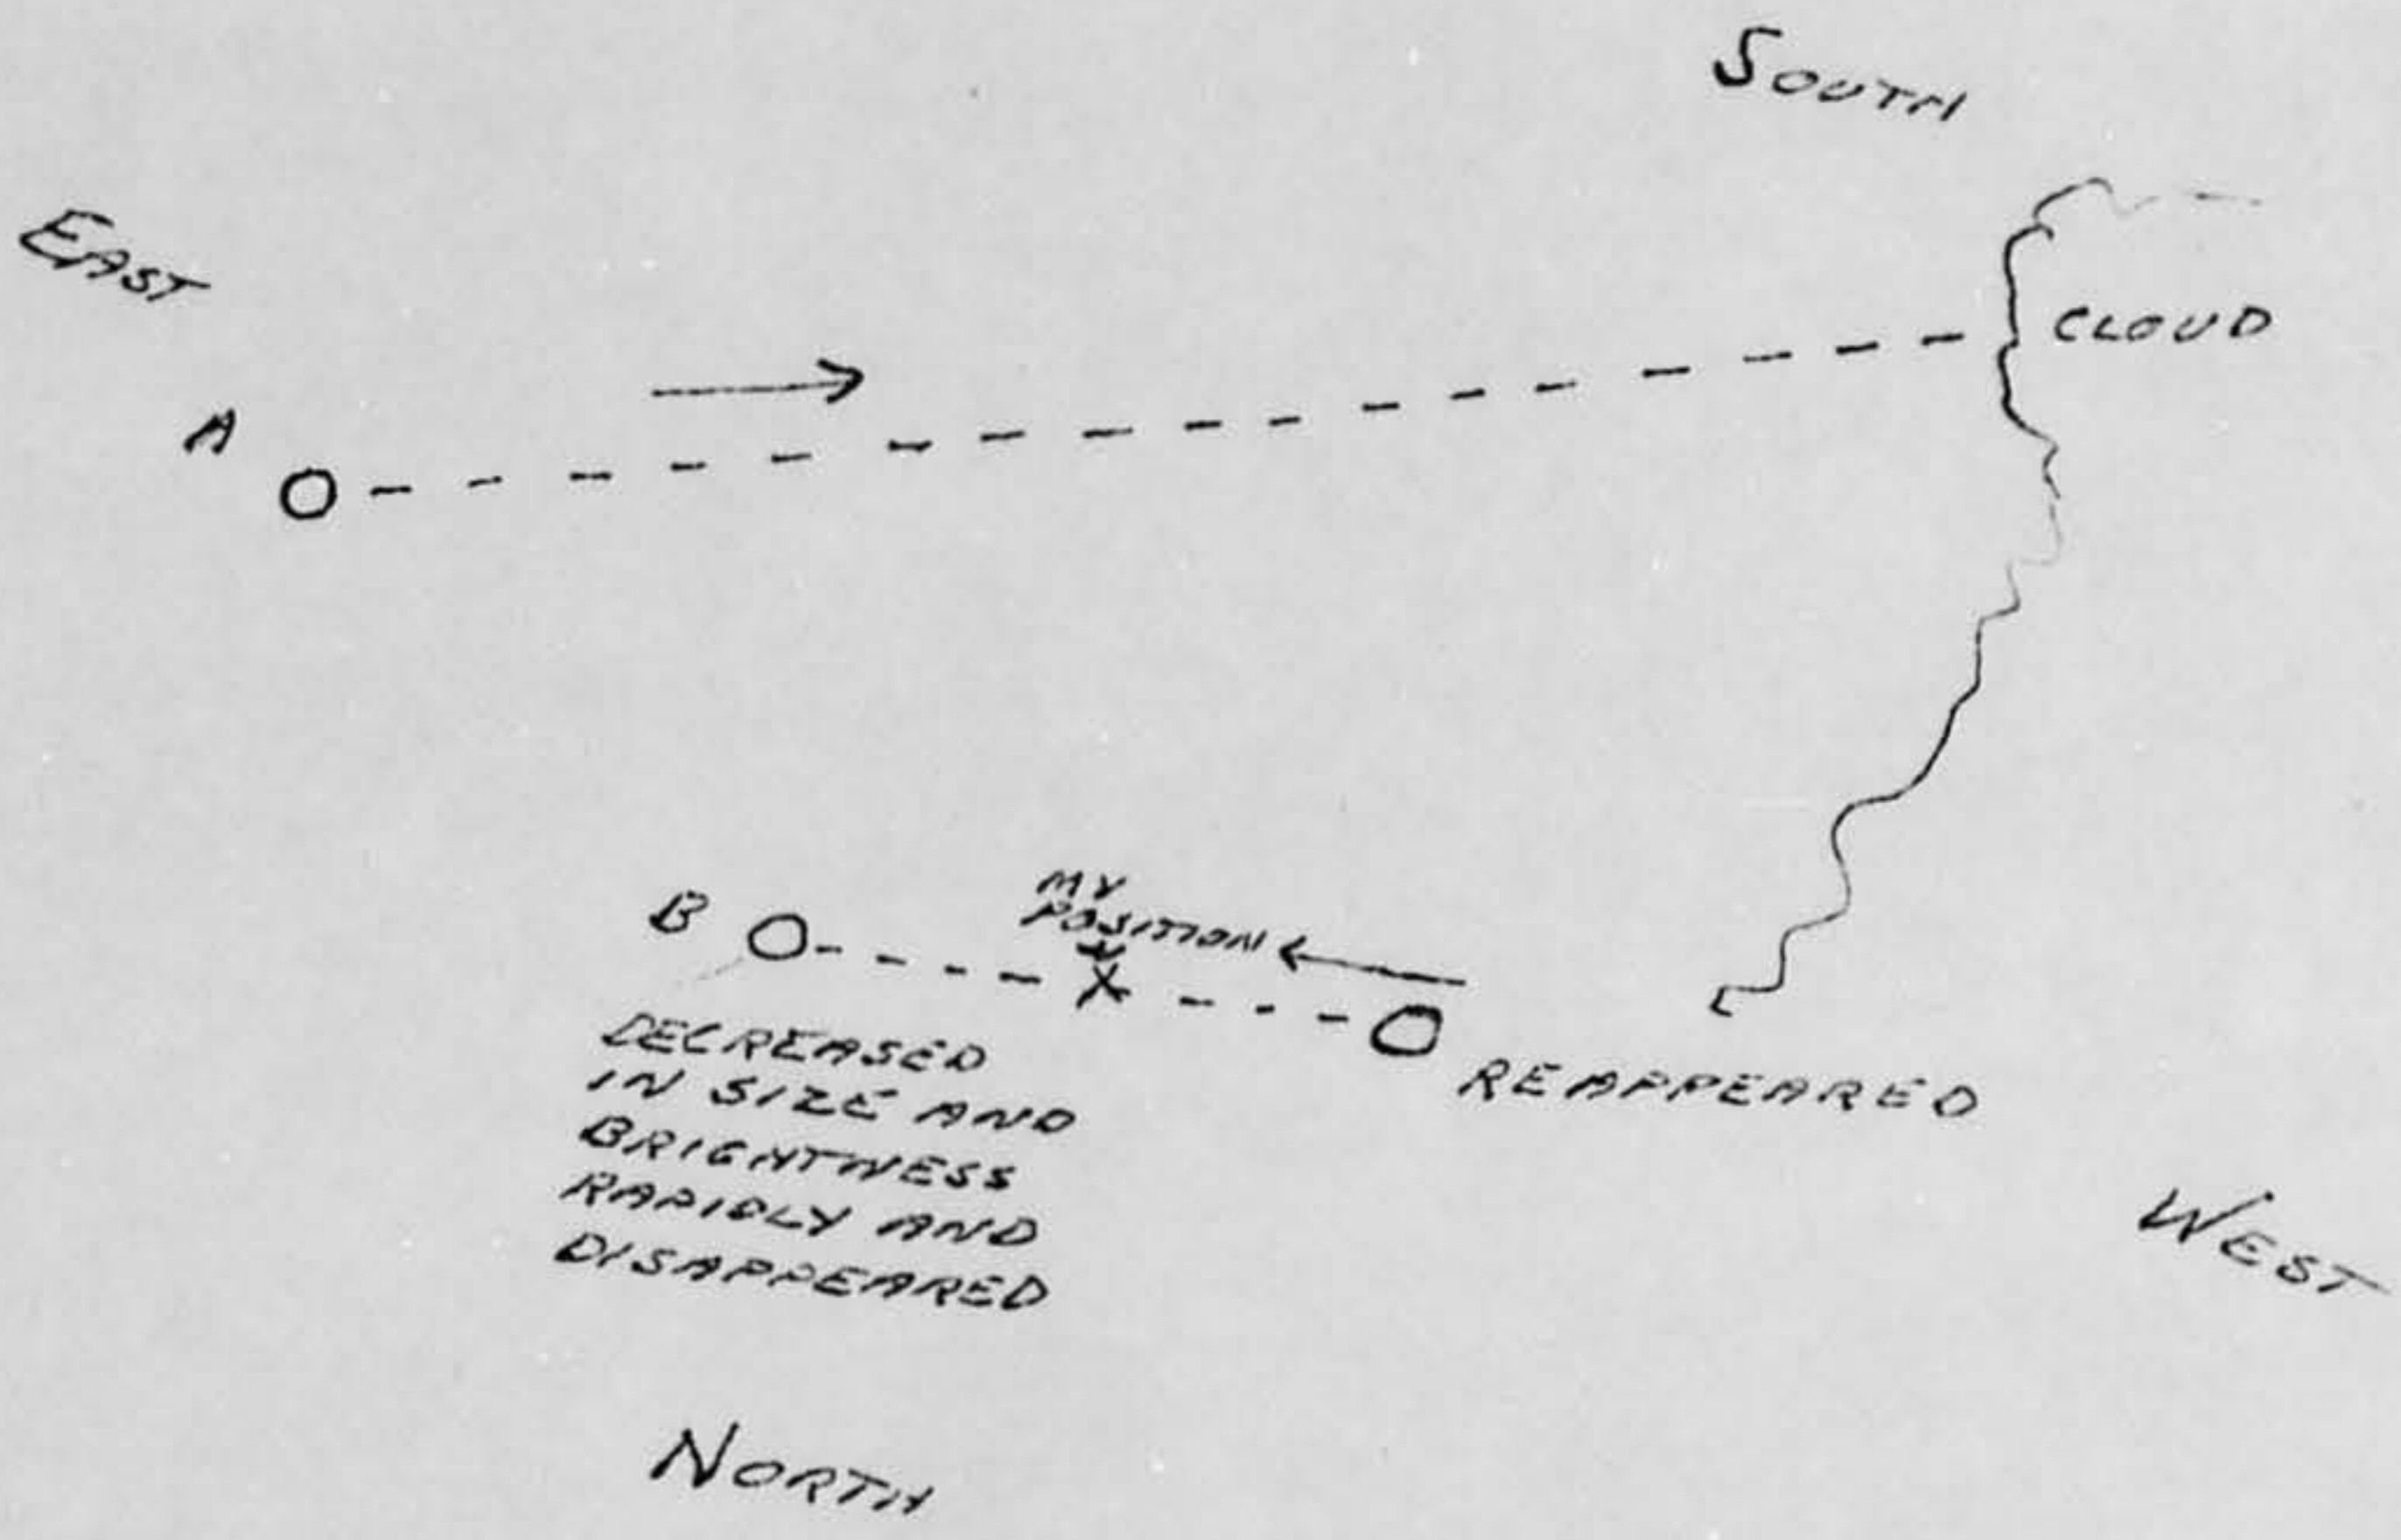 SOUTH
EAST
CLOUD
A
B
MY
POSITION
X
REAPPEARED
DECREASED
IN SIZE AND
BRIGHTNESS
RAPIDLY AND
DISAPPEARED
WEST
NORTH